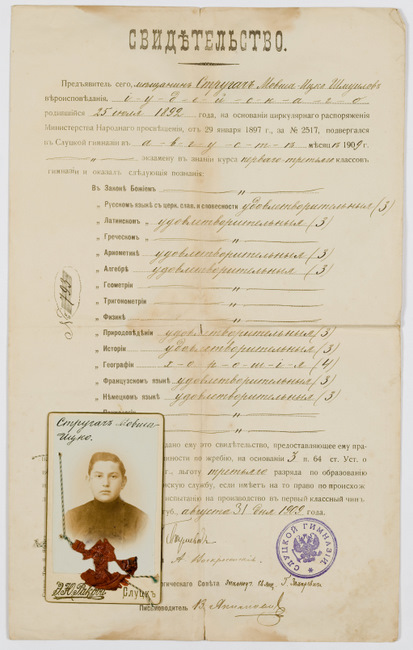 СВИДѢТЕЛЬСТВО.
Предъявитель сего, мѣщанинъ Стругачъ Мовша-Ицко Шмуиловъ
вѣроисповѣданія, іудейскаго
родившійся 25 іюля 1892 года, на основаніи циркулярнаго распоряженія
Министерства Народнаго просвѣщенія, отъ 29 января 1897 г., за № 2517, подвергался
въ Слуцкой гимназіи въ августѣ мѣсяцѣ 1909 г.
„ экзамену въ знаніи курса перваго-третьяго классовъ
гимназіи и оказалъ слѣдующія познанія:
Въ Законѣ Божіемъ „
„ Русскомъ языкѣ съ церк. слав. и словесности удовлетворительныя (3)
„ Латинскомъ удовлетворительныя (3)
„ Греческомъ „
„ Ариѳметикѣ удовлетворительныя (3)
„ Алгебрѣ удовлетворительныя (3)
„ Геометріи „
„ Тригонометріи „
„ Физикѣ „
„ Природовѣдѣніи удовлетворительныя (3)
„ Исторіи удовлетворительныя (3)
„ Географіи хорошія (4)
„ Французскомъ языкѣ удовлетворительныя (3)
„ Нѣмецкомъ языкѣ удовлетворительныя (3)
№ 793
дано ему это свидѣтельство, предоставляющее ему пра-
по жребію, на основаніи 3 п. 64 ст. Уст. о
льготу третьяго разряда по образованію
скую службу, если имѣетъ на то право по происхож
испытанію на производство въ первый классный чинъ
августа 31 дня 1909
Стругачъ Мовша-
Ицко.
Слуцкъ
СЛУЦКОЙ ГИМНАЗІИ
гическаго Совѣта
Письмоводитель